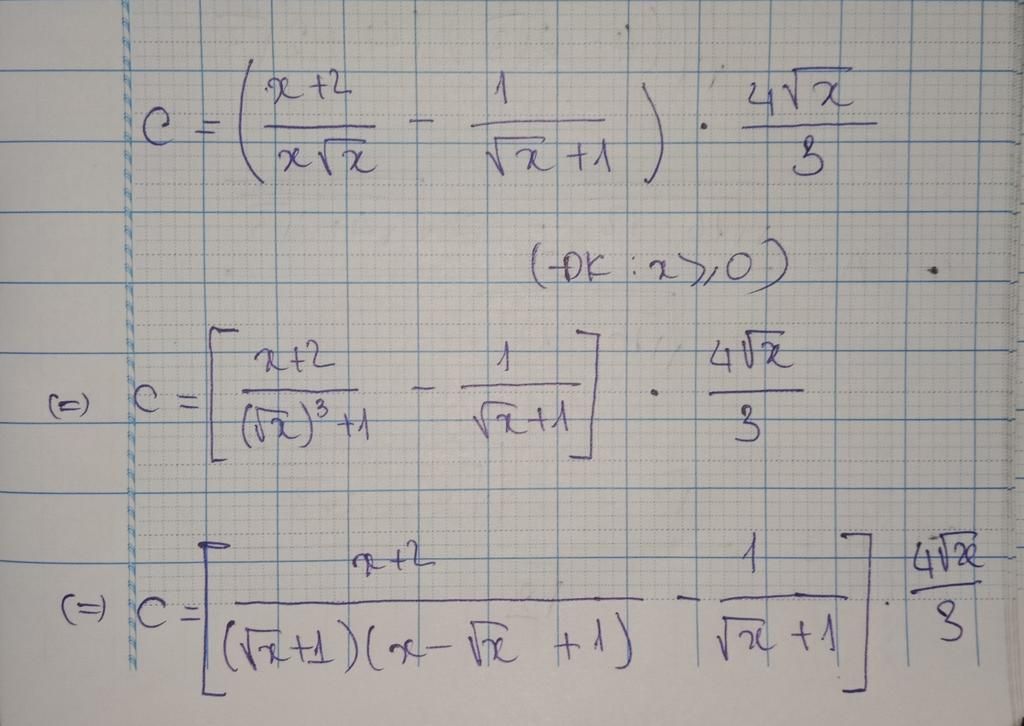 C = ( (x+2)/(x√x) − 1/(√x+1) ) . (4√x)/3
(ĐK : x ⩾ 0)
(=) C = [ (x+2)/((√x)³+1) − 1/(√x+1) ] . (4√x)/3
(=) C = [ (x+2)/((√x+1)(x−√x+1)) − 1/(√x+1) ] . (4√x)/3